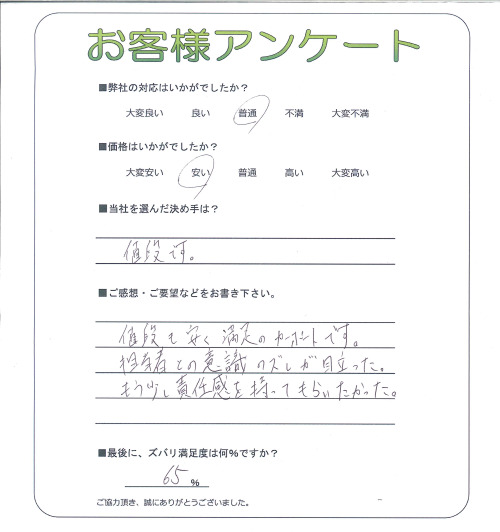 お客様アンケート
■弊社の対応はいかがでしたか?
大変良い 良い 普通 不満 大変不満
■価格はいかがでしたか?
大変安い 安い 普通 高い 大変高い
■当社を選んだ決め手は?
値段です。
■ご感想・ご要望などをお書き下さい。
値段も安く満足のカーポートです。
担当者との意識のズレが目立った。
もう少し責任感を持ってもらいたかった。
■最後に、ズバリ満足度は何%ですか?
65 %
ご協力頂き、誠にありがとうございました。